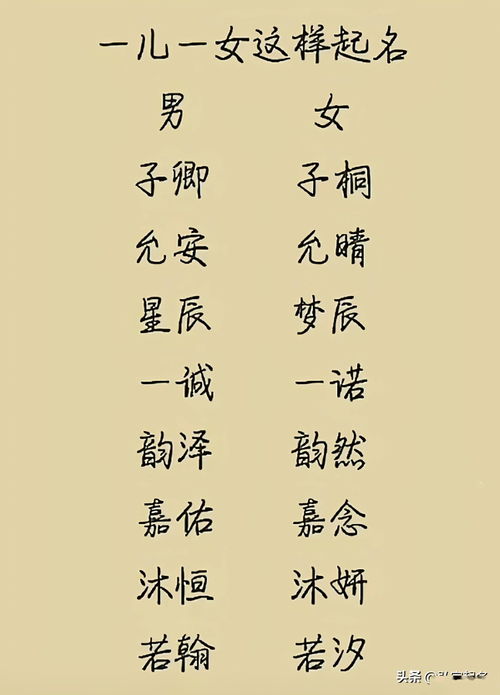 一儿一女这样起名
男 女
子卿 子桐
允安 允晴
星辰 梦辰
一诚 一诺
韵泽 韵然
嘉佑 嘉念
沐恒 沐妍
若翰 若汐
头条